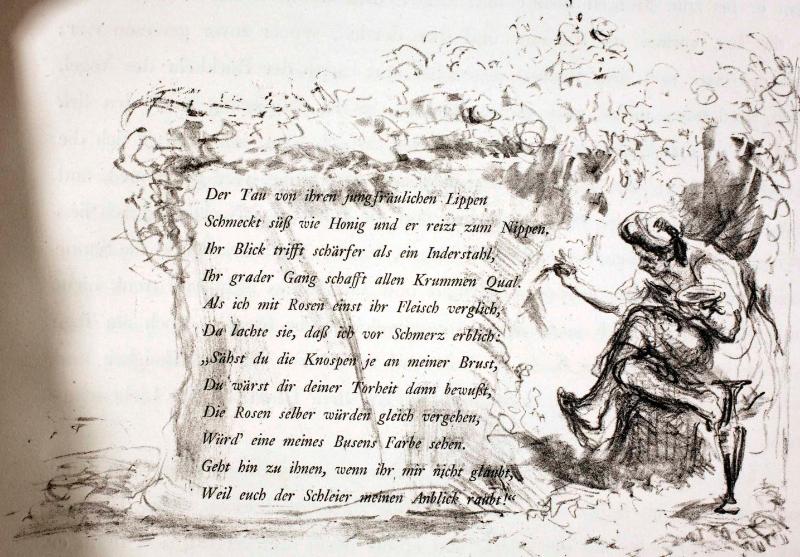 Der Tau von ihren jungfräulichen Lippen
Schmeckt süß wie Honig und er reizt zum Nippen.
Ihr Blick trifft schärfer als ein Inderstahl,
Ihr grader Gang schafft allen Krummen Qual.
Als ich mit Rosen einst ihr Fleisch verglich,
Da lachte sie, daß ich vor Schmerz erblich:
„Sähst du die Knospen je an meiner Brust,
Du wärst dir deiner Torheit dann bewußt,
Die Rosen selber würden gleich vergehen,
Würd' eine meines Busens Farbe sehen.
Geht hin zu ihnen, wenn ihr mir nicht glaubt,
Weil euch der Schleier meinen Anblick raubt!“